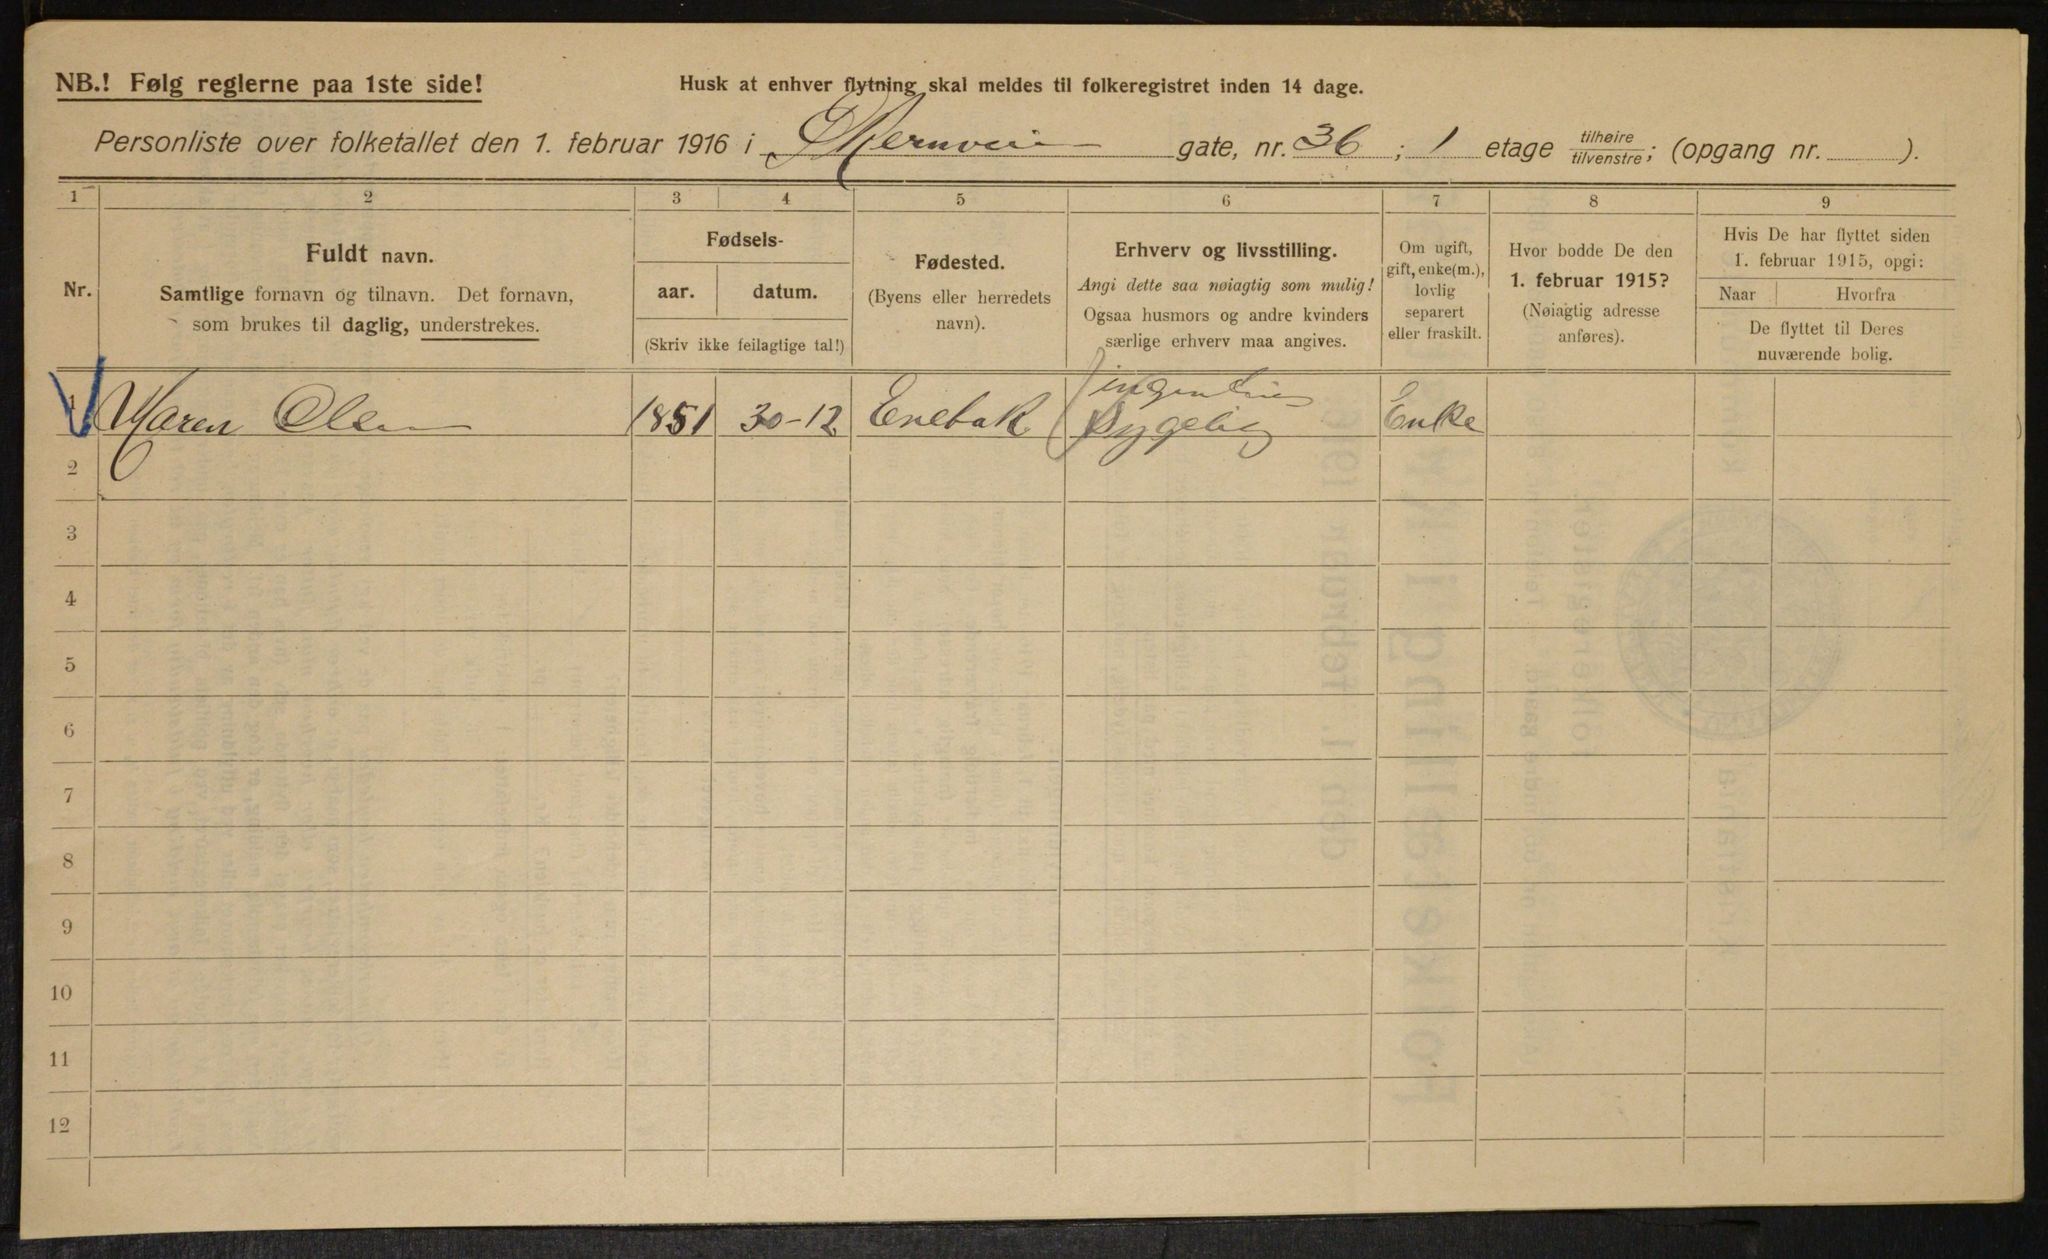 NB.! Følg reglerne paa 1ste side!
Husk at enhver flytning skal meldes til folkeregistret inden 14 dage.
Personliste over folketallet den 1. februar 1916 i gate, nr. 36; 1 etage tilhøire/tilvenstre; (opgang nr. ).
1 2 3 4 5 6 7 8 9
Nr.
Fuldt navn.
Samtlige fornavn og tilnavn. Det fornavn,
som brukes til daglig, understrekes.
Fødsels-
aar. datum.
(Skriv ikke feilagtige tal!)
Fødested.
(Byens eller herredets
navn).
Erhverv og livsstilling.
Angi dette saa nøiagtig som mulig!
Ogsaa husmors og andre kvinders
særlige erhverv maa angives.
Om ugift,
gift, enke(m.),
lovlig
separert
eller fraskilt.
Hvor bodde De den
1. februar 1915?
(Nøiagtig adresse
anføres).
Hvis De har flyttet siden
1. februar 1915, opgi:
Naar Hvorfra
De flyttet til Deres
nuværende bolig.
1 Maren Olsen 1851 30-12 Enebak Sygelig Enke
2
3
4
5
6
7
8
9
10
11
12